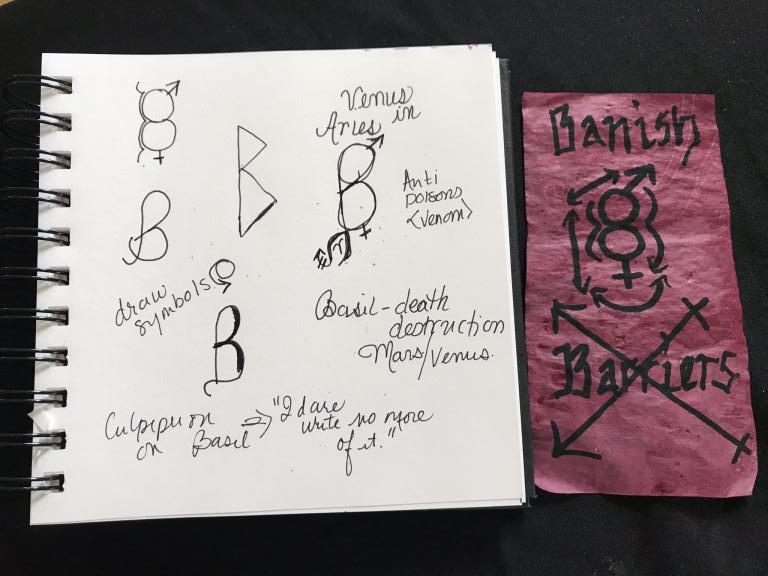 Venus
in
Aries
Anti
poisons
<venom>
draw
symbols
B
Basil - death
destruction
Mars/Venus.
Culpeper on
on Basil => "I dare
write no more
of it."
Banish
Barriers